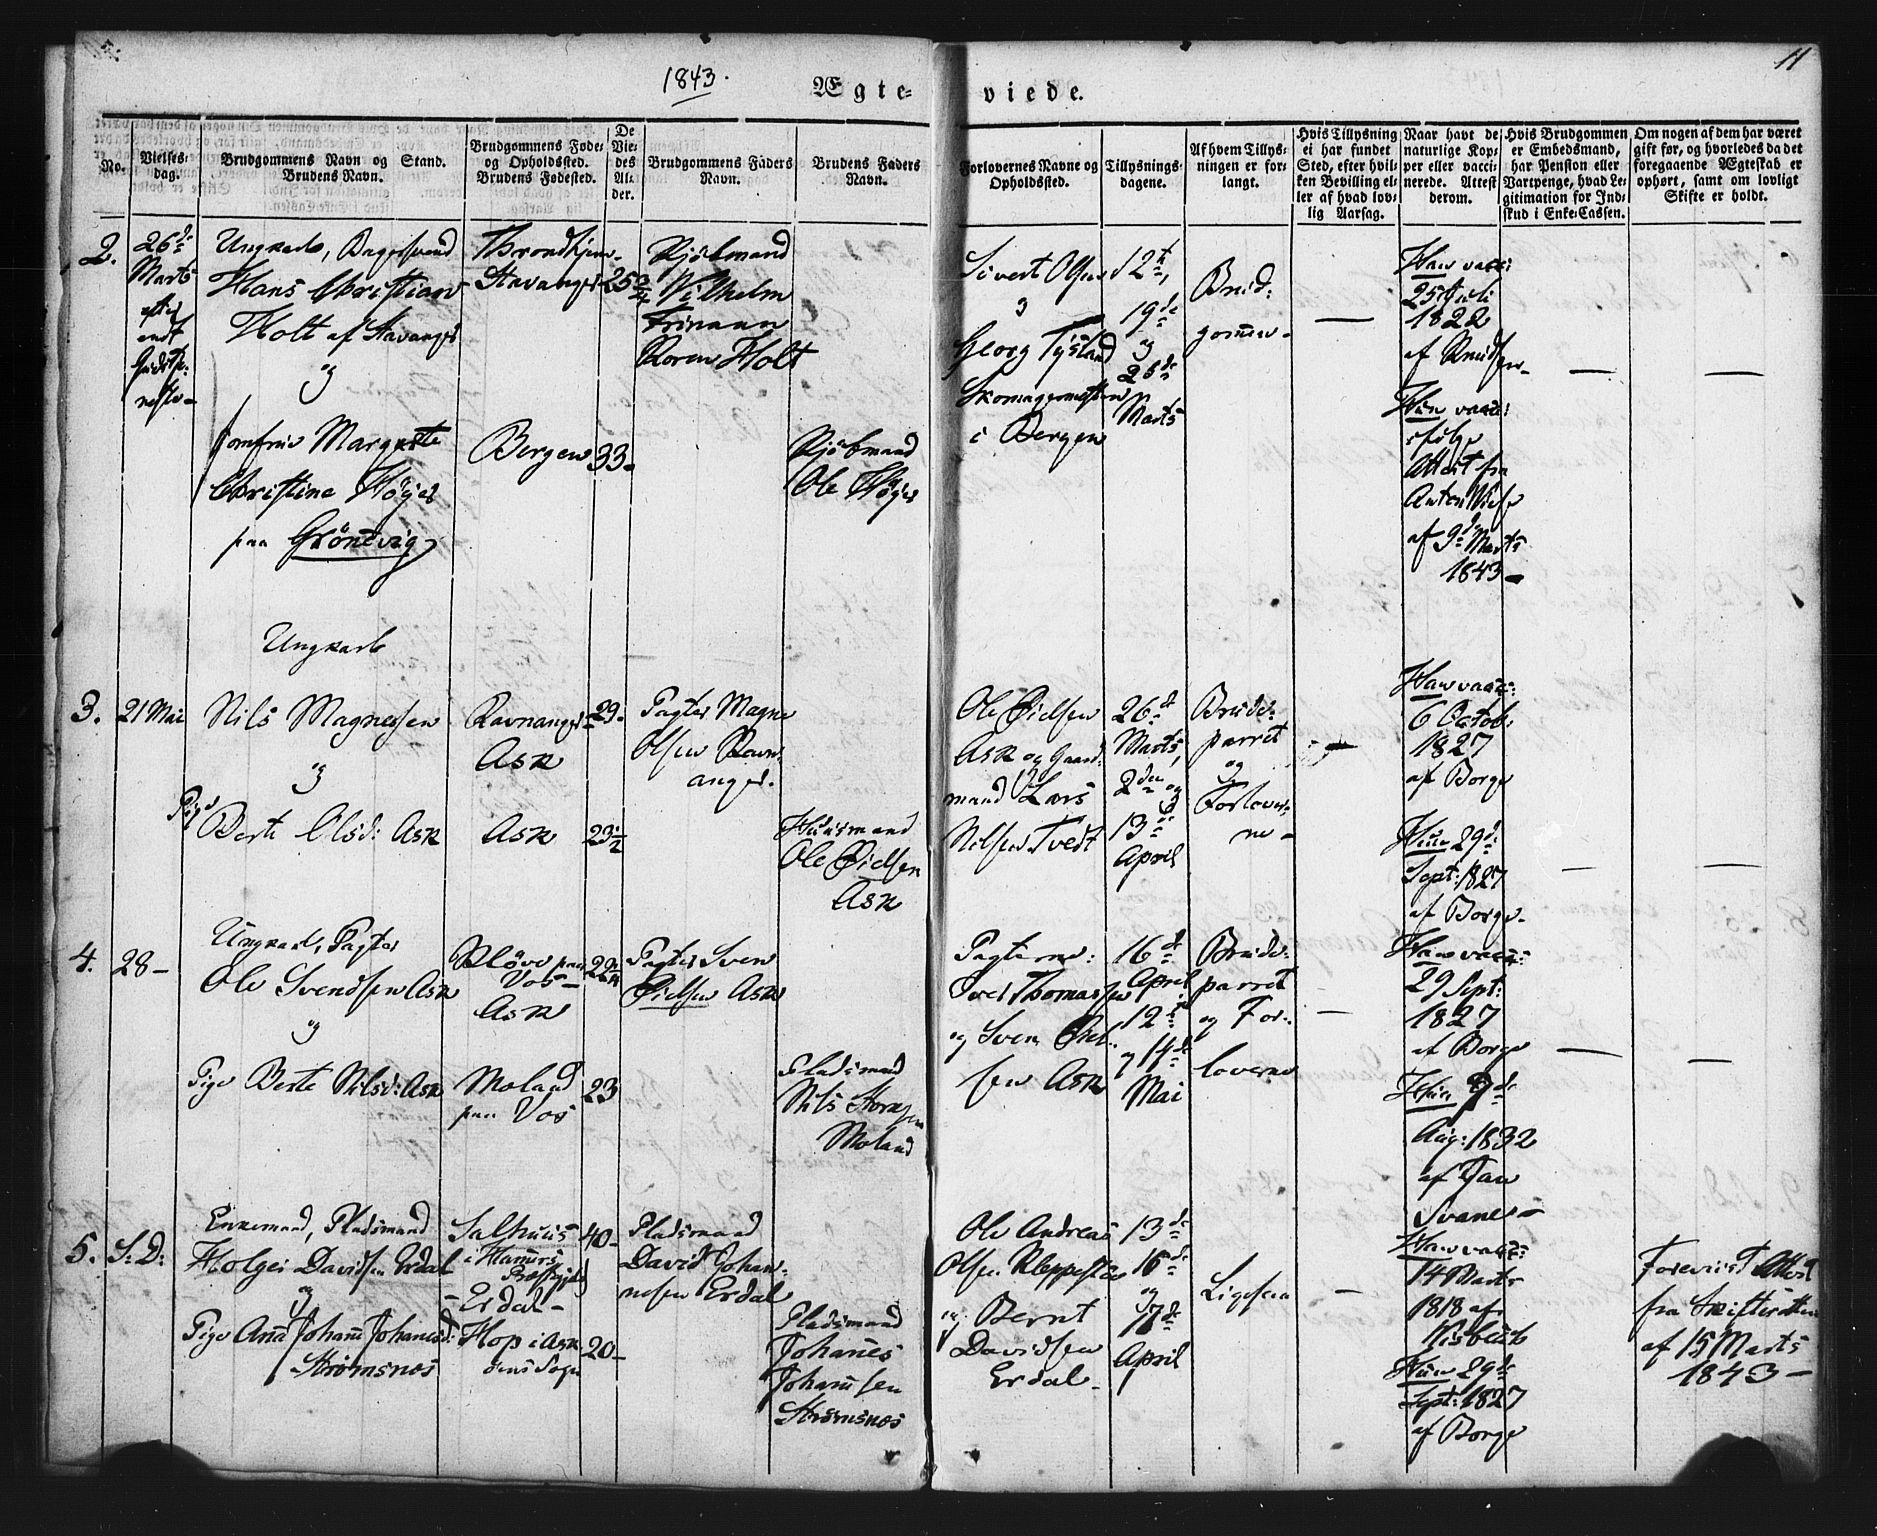 1843.
11
Ægte-viede.
No.
Vielses-
dag.
Brudgommens Navn og Stand.
Brudens Navn.
Brudgommens Føde-
og Opholdssted.
Brudens Fødested.
De
Vie-
des
Al-
der.
Brudgommens Faders
Navn.
Brudens Faders
Navn.
Forlovernes Navne og
Opholdssted.
Tillysnings-
dagene.
Af hvem Tillys-
ningen er for-
langt.
Hvis Tillysning
ei har fundet
Sted, efter hvil-
ken Bevilling el-
ler af hvad lov-
lig Aarsag.
Naar havt de
naturlige Kop-
per eller vacci-
nerede. Attest
derom.
Hvis Brudgommen
er Embedsmand,
har Pension eller
Vartpenge, hvad Le-
gitimation for Ind-
skud i Enke-Cassen.
Om nogen af dem har været
gift før, og hvorledes da det
foregaaende Ægteskab er
ophørt, samt om lovligt
Skifte er holdt.
2.
26de
Marts
efter
endt
Guds tje-
neste-
Ungkarl,
Hans Christian
Holt af Stavanger
og
Jomfrue Margrete
Christine Højer
paa Grönevig
Throndhjem-
Stavanger
Bergen
25 3/4
33-
Kjöbmand
Vilhelm
Frimann
Koren Holt
Kjöbmand
Ole Højer
Sivert Olsen
og
Georg Tysland
Skomagermestere
i Bergen
12te,
19de
og
26de
Marts
Brud-
gommen-
Han vacc:
25 Juli
1822
af Knudsen-
Hun vacc:
ifölge
Attest fra
Anton Wiese
af 9de Marts
1843-
3.
21 Mai
Ungkarl
Nils Magnesen
og
Pige
Berte Olsd: Ask
Ravnanger-
Ask
Ask
29-
23 1/2
Pagter Magne
Olsen Ravn-
anger.
Huusmand
Ole Öielsen
Ask
Ole Öielsen
Ask og Gaard-
mand Lars
Nilsen Tvedt
26de
Marts,
2den og
13de
April
Brude-
parret
og
Forlover-
ne-
Han vacc:
6 Octob:
1827
af Borge
Hun 29de
Sept: 1827
af Borge-
4.
28-
Ungkarl, Pagter
Ole Svendsen Ask
og
Pige Berte Nilsd: Ask
Klöve paa
Vos-
Ask
Moland
paa Vos
23
Pagter Sven
Öielsen Ask
Pladsmand
Nils
Moland
Pagterne:
Thomassen
og Sven
sen Ask
16de
April
12te
og 14de
Mai
Brude-
parret
og For-
loverne
Han vacc:
29 Sept:
1827
af Borge
Hun 9de
Aug: 1832
af Jan
Svane-
5.
S: D:
Enkemand, Pladsmand
Holger Davidsen Erdal
og
Pige Ana Johane Johanesd:
Strömsnæs
Salhuus
i Hammers
Præstegjeld
-Erdal-
Hop i Ask-
öens Sogn
40-
20-
Pladsmand
David Johan-
nesen Erdal
Pladsmand
Johanes
Johansen
Strömsnæs
Ole Andreas
Olsen Kleppestöe
og Bernt
Davidsen
Erdal-
13de
16de
og
17de
April
Ligesaa
Han vacc:
14 Marts
1818 af
Hun 29de
Sept: 1827
af Borge
Foreviist Attest
fra Skifteretten
af 15 Marts
1843-